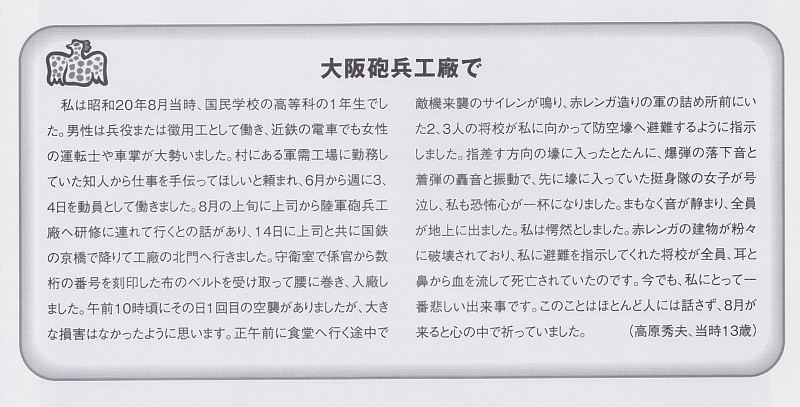 大阪砲兵工廠で
　私は昭和20年8月当時、国民学校の高等科の1年生でし
た。男性は兵役または徴用工として働き、近鉄の電車でも女性
の運転士や車掌が大勢いました。村にある軍需工場に勤務し
ていた知人から仕事を手伝ってほしいと頼まれ、6月から週に3、
4日を動員として働きました。8月の上旬に上司から陸軍砲兵工
廠へ研修に連れて行くとの話があり、14日に上司と共に国鉄
の京橋で降りて工廠の北門へ行きました。守衛室で係官から数
桁の番号を刻印した布のベルトを受け取って腰に巻き、入廠し
ました。午前10時頃にその日1回目の空襲がありましたが、大き
な損害はなかったように思います。正午前に食堂へ行く途中で
敵機来襲のサイレンが鳴り、赤レンガ造りの軍の詰め所前にい
た2、3人の将校が私に向かって防空壕へ避難するように指示
しました。指差す方向の壕に入ったとたんに、爆弾の落下音と
着弾の轟音と振動で、先に壕に入っていた挺身隊の女子が号
泣し、私も恐怖心が一杯になりました。まもなく音が静まり、全員
が地上に出ました。私は愕然としました。赤レンガの建物が粉々
に破壊されており、私に避難を指示してくれた将校が全員、耳と
鼻から血を流して死亡されていたのです。今でも、私にとって一
番悲しい出来事です。このことはほとんど人には話さず、8月が
来ると心の中で祈っていました。　　（高原秀夫、当時13歳）